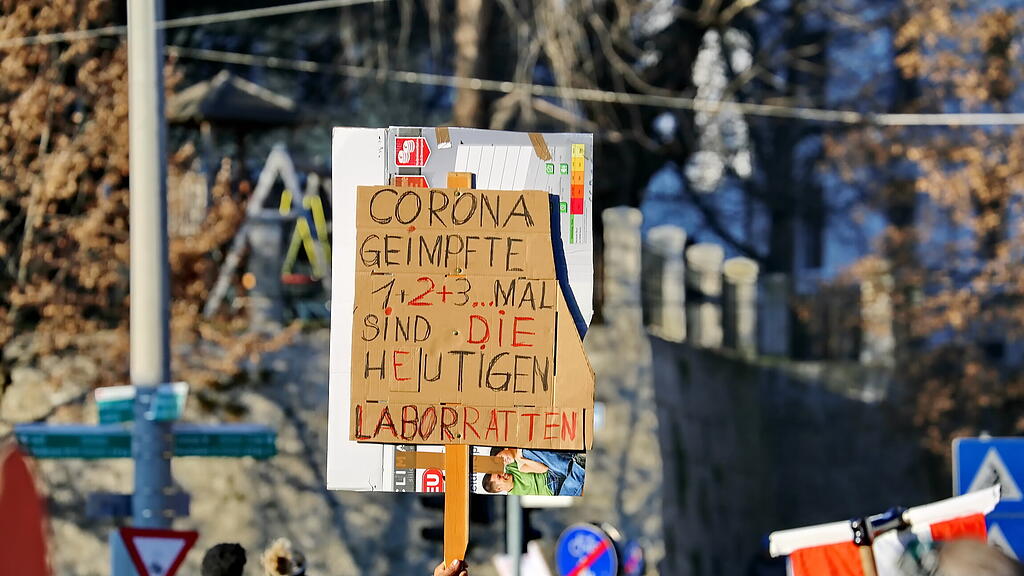 CORONA
GEIMPFTE
1+2+3...MAL
SIND DIE
HEUTIGEN
LABORRATTEN